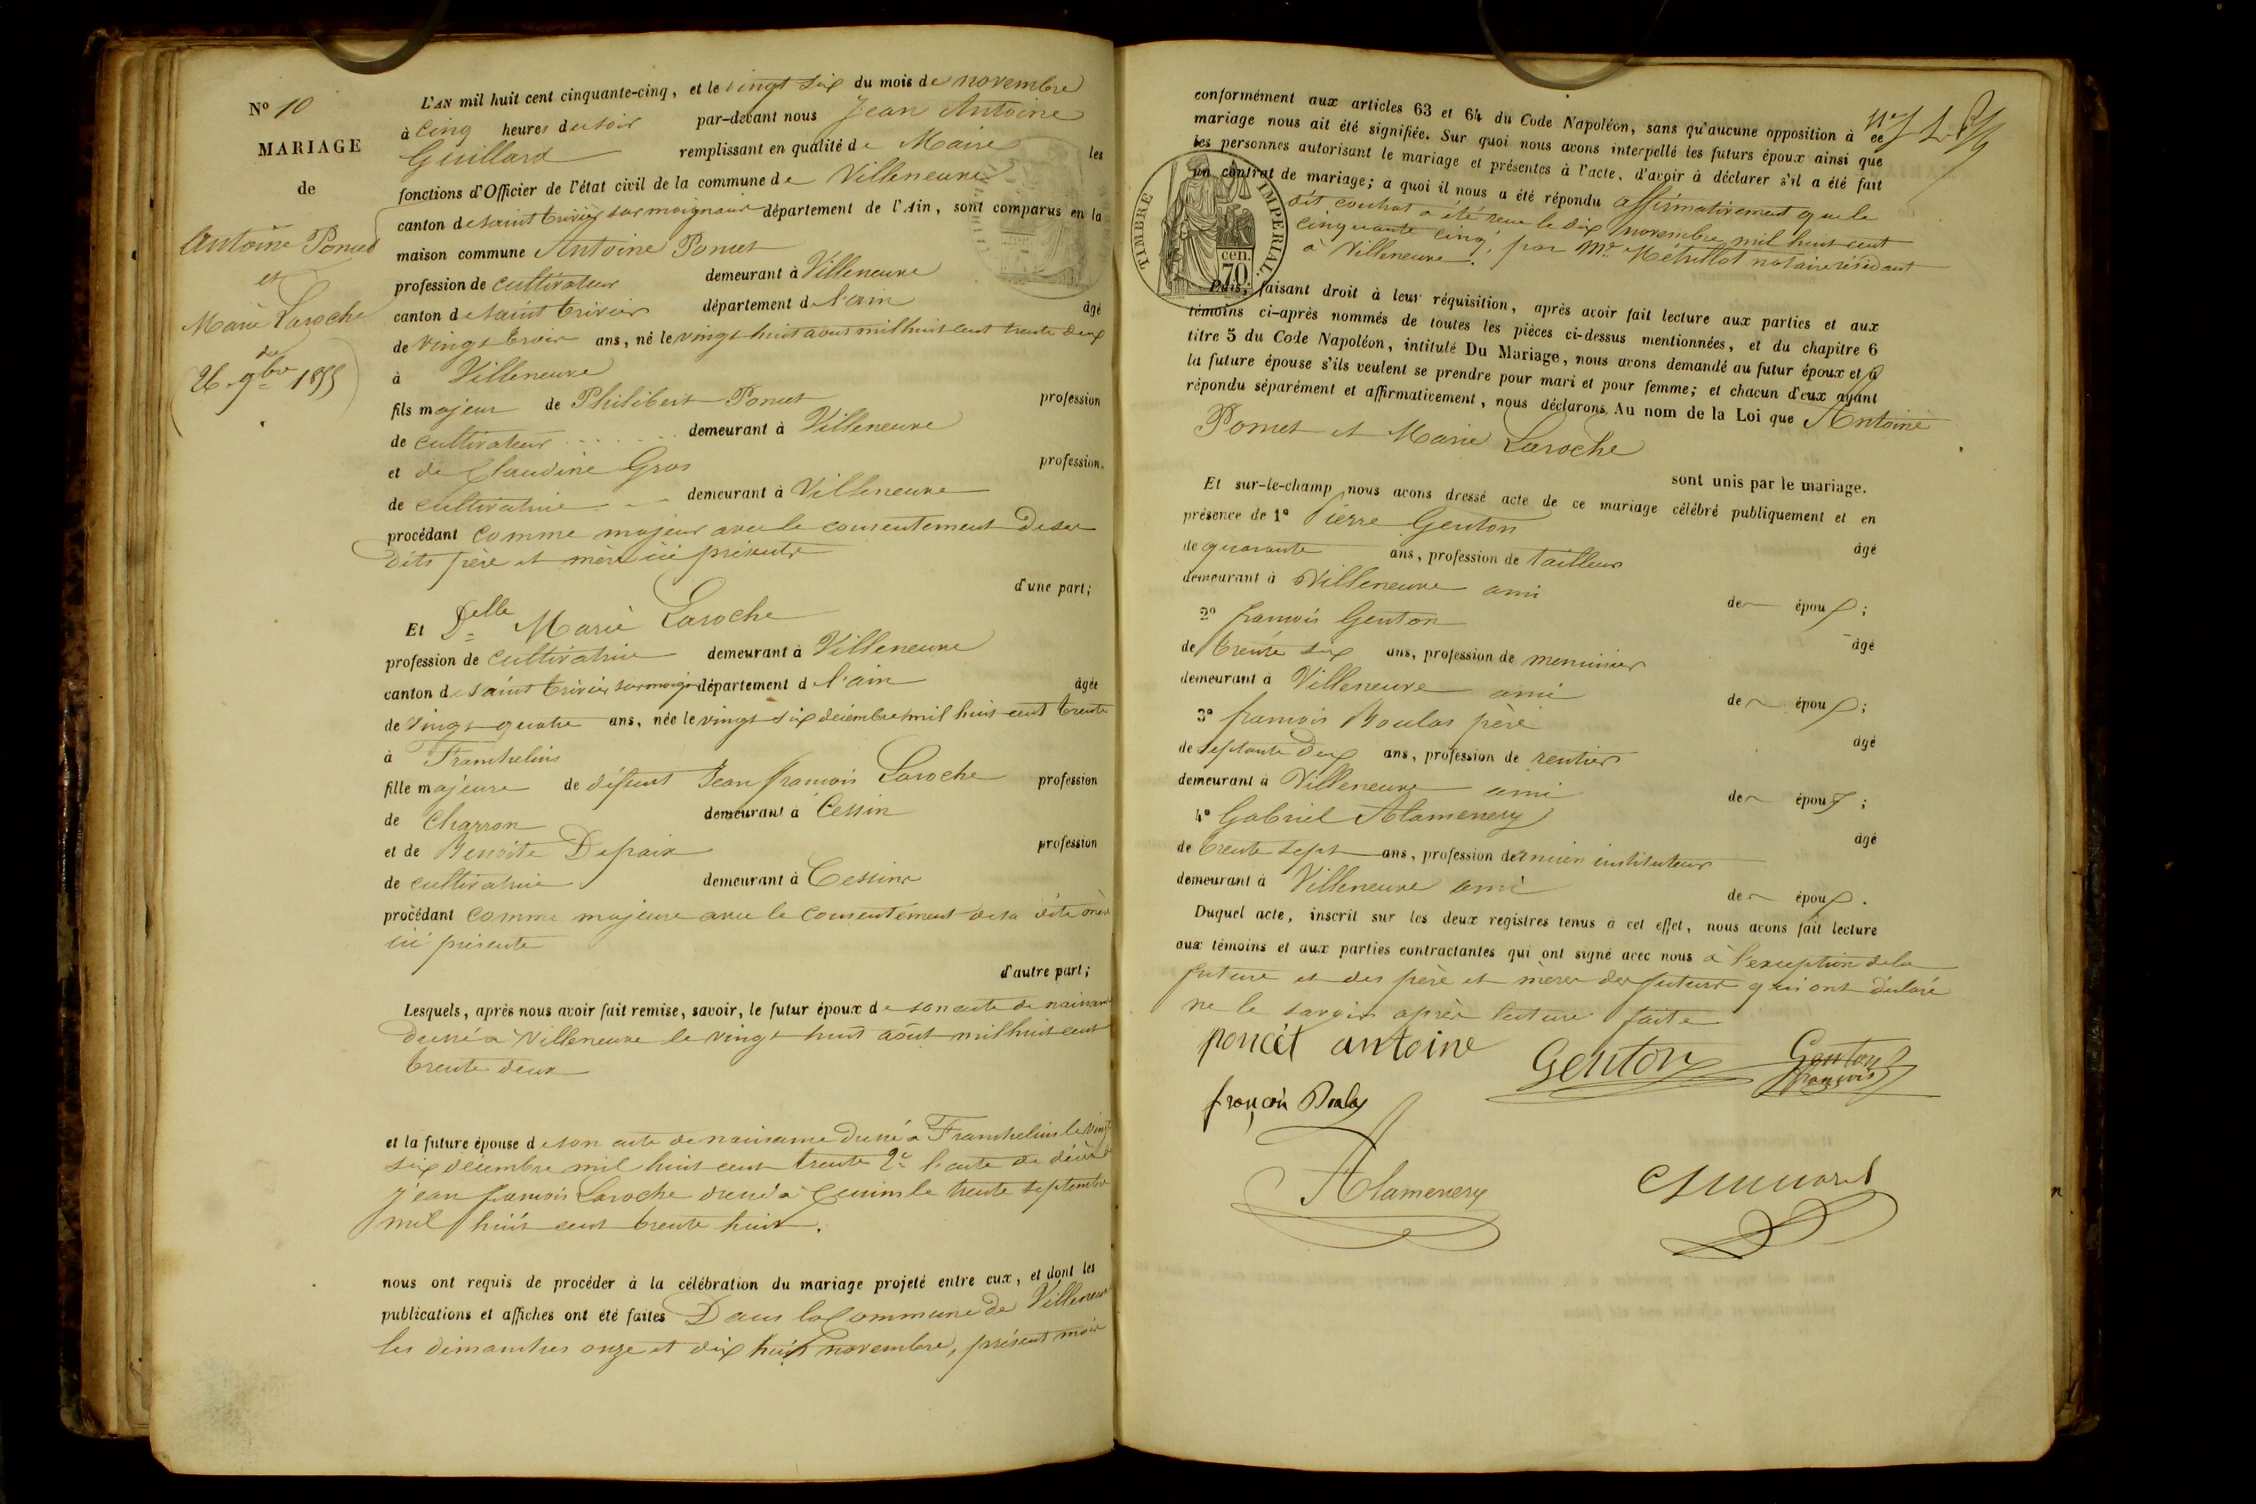 N° 10
MARIAGE
de
Antoine Poncet
et
Marie Laroche
du
26 9bre 1855
L'AN mil huit cent cinquante-cinq, et le vingt six du mois de novembre
à cinq heures du soir par-devant nous Jean Antoine
Guillard remplissant en qualité de Maire les
fonctions d'Officier de l'état civil de la commune de Villeneuve
canton de saint trivier sur moignans département de l'Ain, sont comparus en la
maison commune Antoine Poncet
profession de cultivateur demeurant à Villeneuve
canton de saint trivier département de l'ain âgé
de vingt trois ans, né le vingt huit aout mil huit cent trente deux
à Villeneuve
fils majeur de Philibert Poncet profession
de cultivateur demeurant à Villeneuve
et de Claudine Gros profession
de cultivatrice demeurant à Villeneuve
procédant comme majeur avec le consentement de ses
dits père et mère ici présents
d'une part;
Et Delle Marie Laroche
profession de cultivatrice demeurant à Villeneuve
canton de saint trivier sur moigns département de l'ain âgée
de vingt quatre ans, née le vingt six décembre mil huit cent trente
à Franchelins
fille majeure de défunt Jean françois Laroche profession
de Charron demeurant à Cessin
et de Benoite Depaix profession
de cultivatrice demeurant à Cessins
procédant comme majeure avec le consentement de sa dite mère
ici présente
d'autre part;
Lesquels, après nous avoir fait remise, savoir, le futur époux de son acte de naissance
dressé à Villeneuve le vingt huit août mil huit cent
trente deux
et la future épouse de son acte de naissance dressé à Franchelins le vingt
six décembre mil huit cent trente 2° l'acte de décès de
Jean françois Laroche dressé à Cessins le trente septembre
mil huit cent trente huit.
nous ont requis de procéder à la célébration du mariage projeté entre eux, et dont les
publications et affiches ont été faites Dans la Commune de Villeneuve
les dimanches onze et dix huit novembre, présent mois
conformément aux articles 63 et 64 du Code Napoléon, sans qu'aucune opposition à ce
mariage nous ait été signifiée. Sur quoi nous avons interpellé les futurs époux ainsi que
les personnes autorisant le mariage et présentes à l'acte, d'avoir à déclarer s'il a été fait
un contrat de mariage; à quoi il nous a été répondu affirmativement que le
dit contrat a été reçu le dix novembre mil huit cent
cinquante cinq, par Me Métrillot notaire résidant
à Villeneuve.
TIMBRE IMPERIAL
cen.
70
Puis, faisant droit à leur réquisition, après avoir fait lecture aux parties et aux
témoins ci-après nommés de toutes les pièces ci-dessus mentionnées, et du chapitre 6
titre 5 du Code Napoléon, intitulé Du Mariage, nous avons demandé au futur époux et à
la future épouse s'ils veulent se prendre pour mari et pour femme; et chacun d'eux ayant
répondu séparément et affirmativement, nous déclarons, Au nom de la Loi que Antoine
Poncet et Marie Laroche
sont unis par le mariage.
Et sur-le-champ nous avons dressé acte de ce mariage célébré publiquement et en
présence de 1° Pierre Genton âgé
de quarante ans, profession de tailleur
demeurant à Villeneuve ami de époux;
2° françois Genton âgé
de trente six ans, profession de menuisier
demeurant à Villeneuve ami de époux;
3° françois Boulas père âgé
de septante deux ans, profession de rentier
demeurant à Villeneuve ami de époux;
4° Gabriel Alamenery âgé
de trente sept ans, profession d'ancien instituteur
demeurant à Villeneuve ami de époux.
Duquel acte, inscrit sur les deux registres tenus à cet effet, nous avons fait lecture
aux témoins et aux parties contractantes qui ont signé avec nous à l'exception de la
future et des père et mères des futurs qui ont déclaré
ne le savoir après lecture faite
poncét antoine
Genton
Genton
françois
françois Boulas
Alamenery